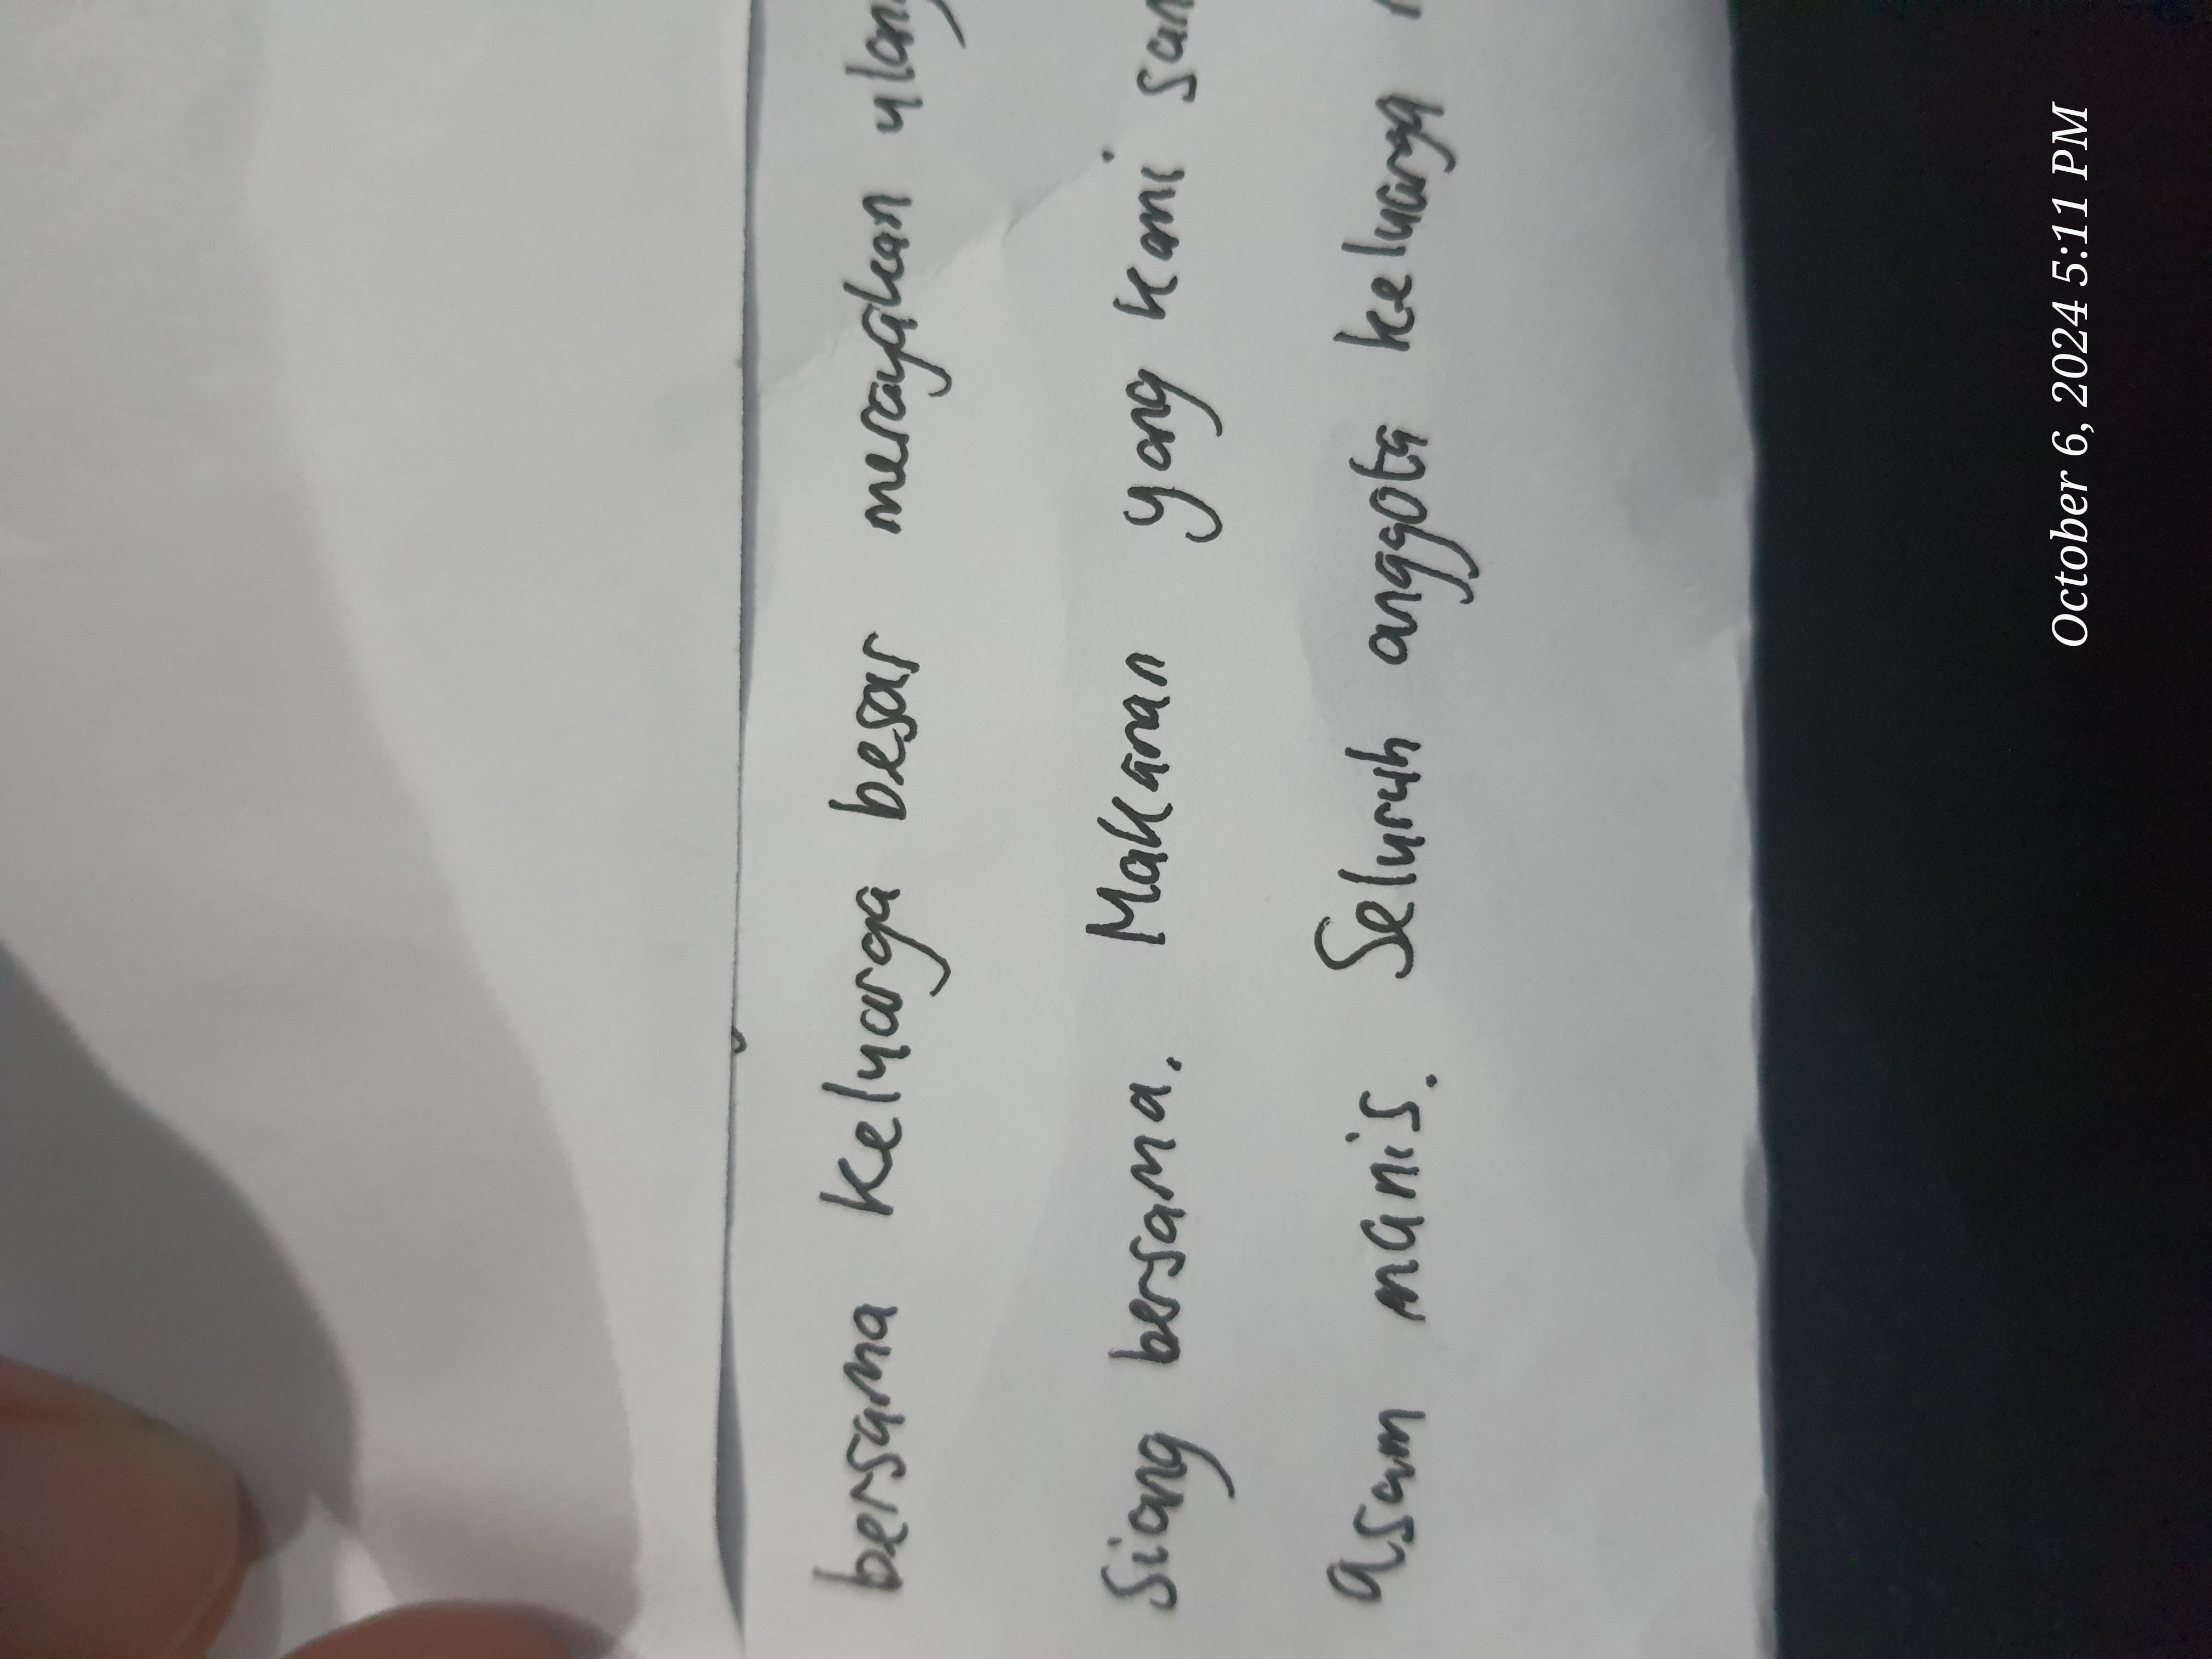 bersama keluarga besar merayakan ulang
Siang bersama. Makanan yang kami san
asam manis. Seluruh anggota keluarg
October 6, 2024 5:11 PM